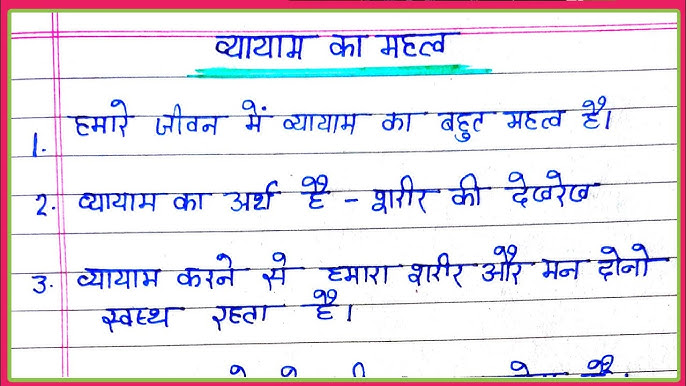 व्यायाम का महत्व
1. हमारे जीवन में व्यायाम का बहुत महत्व है।
2. व्यायाम का अर्थ है - शरीर की देखरेख
3. व्यायाम करने से हमारा शरीर और मन दोनो
स्वस्थ रहता है।